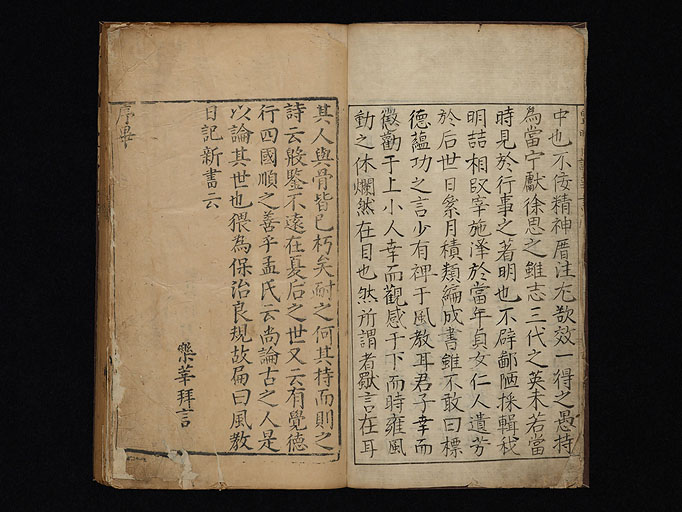 中也不佞精神厝注尤欲效一得之愚持
為當宁獻徐思之雖志三代之英未若當
時見於行事之著明也不辟鄙陋採輯我
明喆相馭宰施泽於當年貞女仁人遺芳
於后世日系月積類編成書雖不敢曰標
德蘊功之言少有裨于風教耳君子幸而
懲勸于上小人幸而觀感于下而時雍風
動之休爛然在目也然所謂者歇言在耳
其人與骨皆已朽矣耐之何其持而則之
詩云殷鉴不遠在夏后之世又云有覺德
行四國順之善乎孟氏云尚論古之人是
以論其世也猥為保治良規故扁曰風教
日記新書云
樂莘拜言
序畢